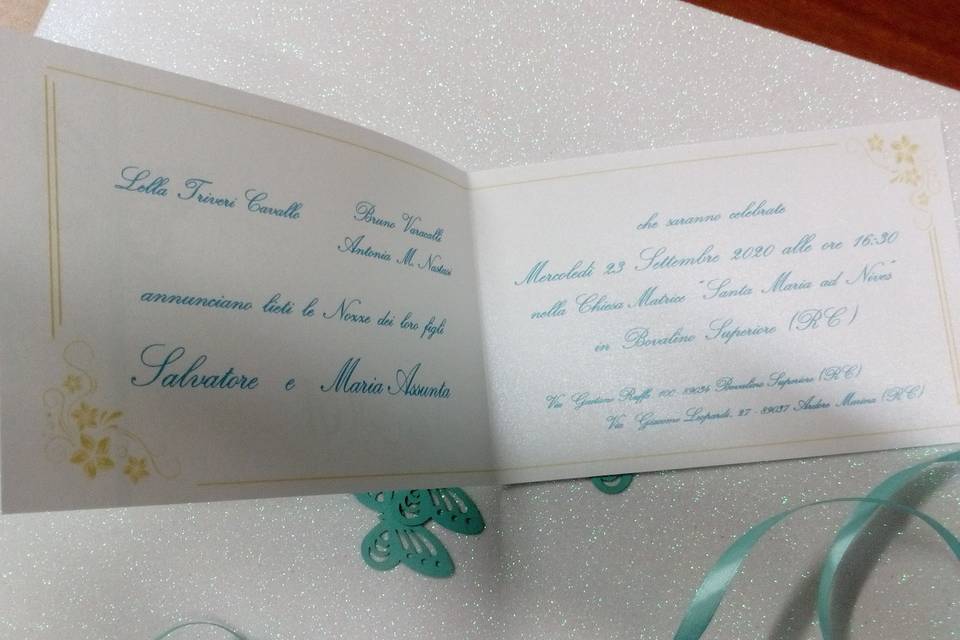 Lella Triveri Cavallo
Bruno Varacalli
Antonia M. Nastasi
annunciano lieti le Nozze dei loro figli
Salvatore e Maria Assunta
che saranno celebrate
Mercoledì 23 Settembre 2020 alle ore 16:30
nella Chiesa Matrice "Santa Maria ad Nives"
in Bovalino Superiore (RC)
Via Gaetano Ruffo, 100 - 89034 Bovalino Superiore (RC)
Via Giacomo Leopardi, 27 - 89037 Ardore Marina (RC)